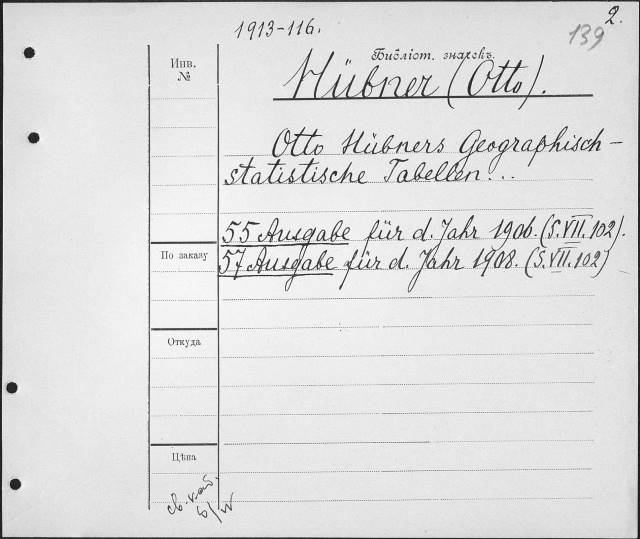 2.
1913-116.
139
Инв.
№
Библіот. значекъ.
Hübner (Otto).
Otto Hübners Geographisch-
statistische Tabellen...
55 Ausgabe für d. Jahr 1906. (S.VII.102).
По заказу
57 Ausgabe für d. Jahr 1908. (S.VII.102)
Откуда
Цѣна